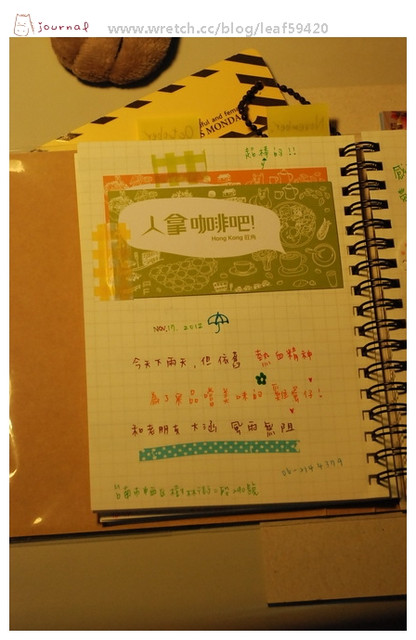 journal
www.wretch.cc/blog/leaf59420
S MONDA
November
October
超棒的!!
人拿咖啡吧!
Hong Kong 旺角
Nov, 17. 2012
今天下雨天,但依舊 熱血精神
為了來品嚐美味的 雞蛋仔!
和老朋友 大沁 風雨無阻